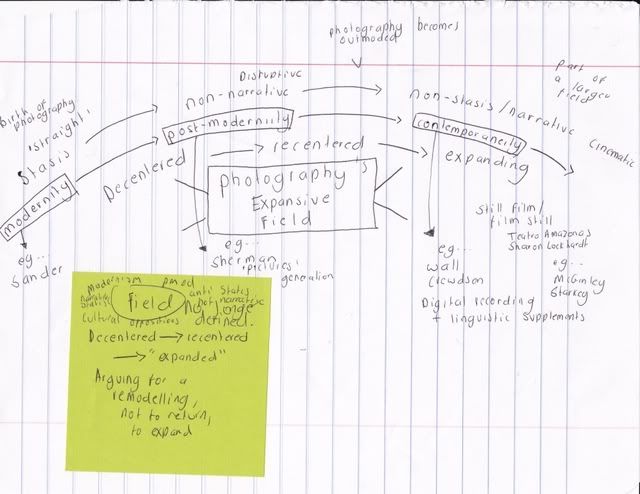 photography becomes
outmoded
part of
a larger
field
Birth of
photography
'straight'
Stasis
modernity
eg...
Sander
Disruptive
non-narrative
post-modernity
Decentered
recentered
photography's
Expansive
Field
eg...
Sherman
'pictures'
generation
non-stasis/narrative
contemporaneity
expanding
cinematic
eg...
Wall
Crewdson
Digital recording
+ linguistic supplements
Still film/
film still
Teatro Amazonas
Sharon Lockhardt
eg...
McGinley
Starkey
Modernism pmod
field
anti
not narrative
no longer
defined.
cultural oppositions
Decentered → recentered
→ "expanded"
Arguing for a
remodelling,
not to return,
to expand